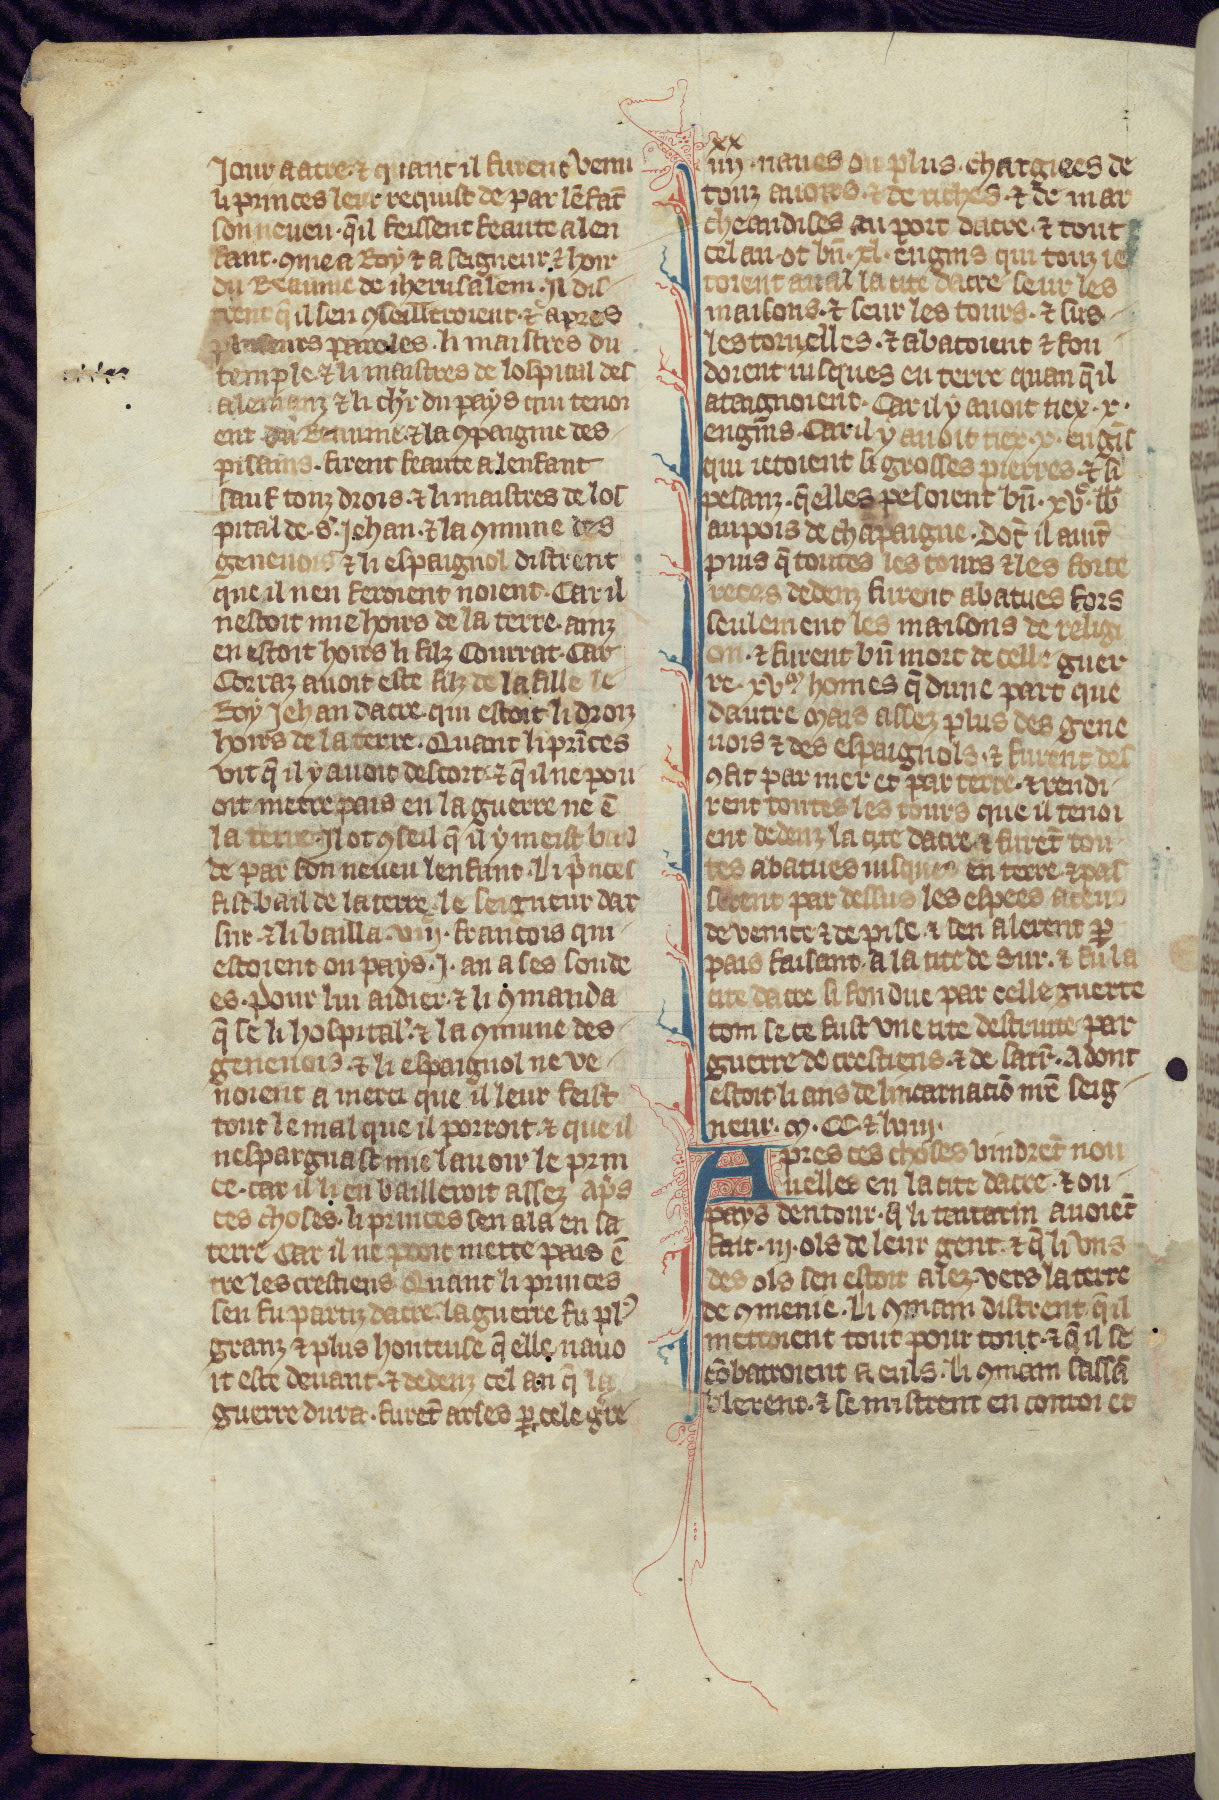 Jour a acre · ⁊ quant il furent venu
li princes leur requist de par lēfāt
son neveu · q̄ il feissent feaute a len
fant · ꝯme a Roy ⁊ a seigneur ⁊ hoir
du Reaume de iherusalem · Il dis
trent q̄ il sen ꝯseilleroient · ⁊ apres
pluseurs paroles · li maistres du
temple · ⁊ li maistres de lospital des
alemanz ⁊ li chr̄ du pays qui tenoi
ent du Reaume · ⁊ la ꝯpaignie des
pisains · firent feaute a lenfant
sauf touz drois · ⁊ li maistres de los
pital de · s · Jehan · ⁊ la ꝯmune des
genevois ⁊ li espaignol distrent
que il nen feroient noient · Car il
nestoit mie hoirs de la terre · ainz
en estoit hoirs li filz Courrat · Car
Corraz avoit este filz de la fille le
Roy Jehan dacre · qui estoit li droiz
hoirs de la terre · Quant li prīces
vit q̄ il y avoit descort · ⁊ q̄ il ne pou
oit metre pais en la guerre ne ē
la terre · Il ot ꝯseil q̄ il y meist bail
de par son neveu lenfant · Li p̄nces
fist bail de la terre le seigneur dar
sur · ⁊ li bailla · viij · francois qui
estoient ou pays · j · an a ses soude
es · pour lui aidier · ⁊ li ꝯmanda
q̄ se li hospital · ⁊ la ꝯmune des
genevois · ⁊ li espaignol ne ve
noient a merci que il leur feist
tout le mal que il porroit · ⁊ que il
nespargnast mie lavoir le prin
ce · car il li en bailleroit assez · Ap̄s
ces choses · li princes sen ala en sa
terre Car il ne pooit mettre pais ē
tre les crestiens Quant li princes
sen fu partiz dacre · la guerre fu pl⁹
granz ⁊ plus honteuse q̄ elle navo
it este devant · ⁊ dedenz cel an q̄ la
guerre dura · furēt arses ꝑ cele gr̄re
xx
iiij · naves ou plus · chargiees de
touz avoirs · ⁊ de riches · ⁊ de mar
cheandises au port dacre · ⁊ tout
cel an · ot bn̄ · xl · engins qui touz ie
toient aval la cite dacre seur les
maisons · ⁊ seur les tours · ⁊ sus
les tornelles · ⁊ abatoient ⁊ fon
doient iusques en terre quan q̄ il
ataignoient · Car il y avoit tiex · x ·
engins · Car il y avoit tiex · x · engīs
qui ietoient si grosses pierres · ⁊ si
pesanz · q̄ elles pesoient bn̄ · xvᶜ · lb
au pois de chāpaigne · Dōt il avīt
puis q̄ toutes les tours ⁊ les forte
reces dedenz furent abatues fors
seulement les maisons de religi
on · ⁊ furent bn̄ mort de celle guer
re · xvᵐ homes q̄ dune part que
dautre Mais assez plus des gene
vois ⁊ des espaignols · ⁊ furent des
ꝯfit par mer et par terre · ⁊ rendi
rent toutes les tours que il tenoi
ent dedenz la cite dacre ⁊ furēt tou
tes abatues iusques en terre · ⁊ pas
serent par dessus les espees a ceus
de venice ⁊ de pise · ⁊ sen alerent ꝑ
pais faisant · a la cite de Sur · ⁊ fu la
cite dacre si fondue par celle guerre
com se ce fust une cite destruite par
guerre de crestiens · ⁊ de sarr̄ · Adont
estoit li ans de lincarnaciō nr̄e seig
neur · M · CC · ⁊ lviij ·
Apres ces choses vindrēt nou
velles en la cite dacre · ⁊ ou
pays dentour · q̄ li tartarin avoiēt
fait · iij · ols de leur gent · ⁊ q̄ li uns
des ols sen estoit alez vers la terre
de ꝯmenie · Li ꝯmain distrent q̄ il
mettroient tout pour tout · ⁊ q̄ il se
cōbatroient a euls · li ꝯmain sassā
blerent · ⁊ se mistrent en conroi et